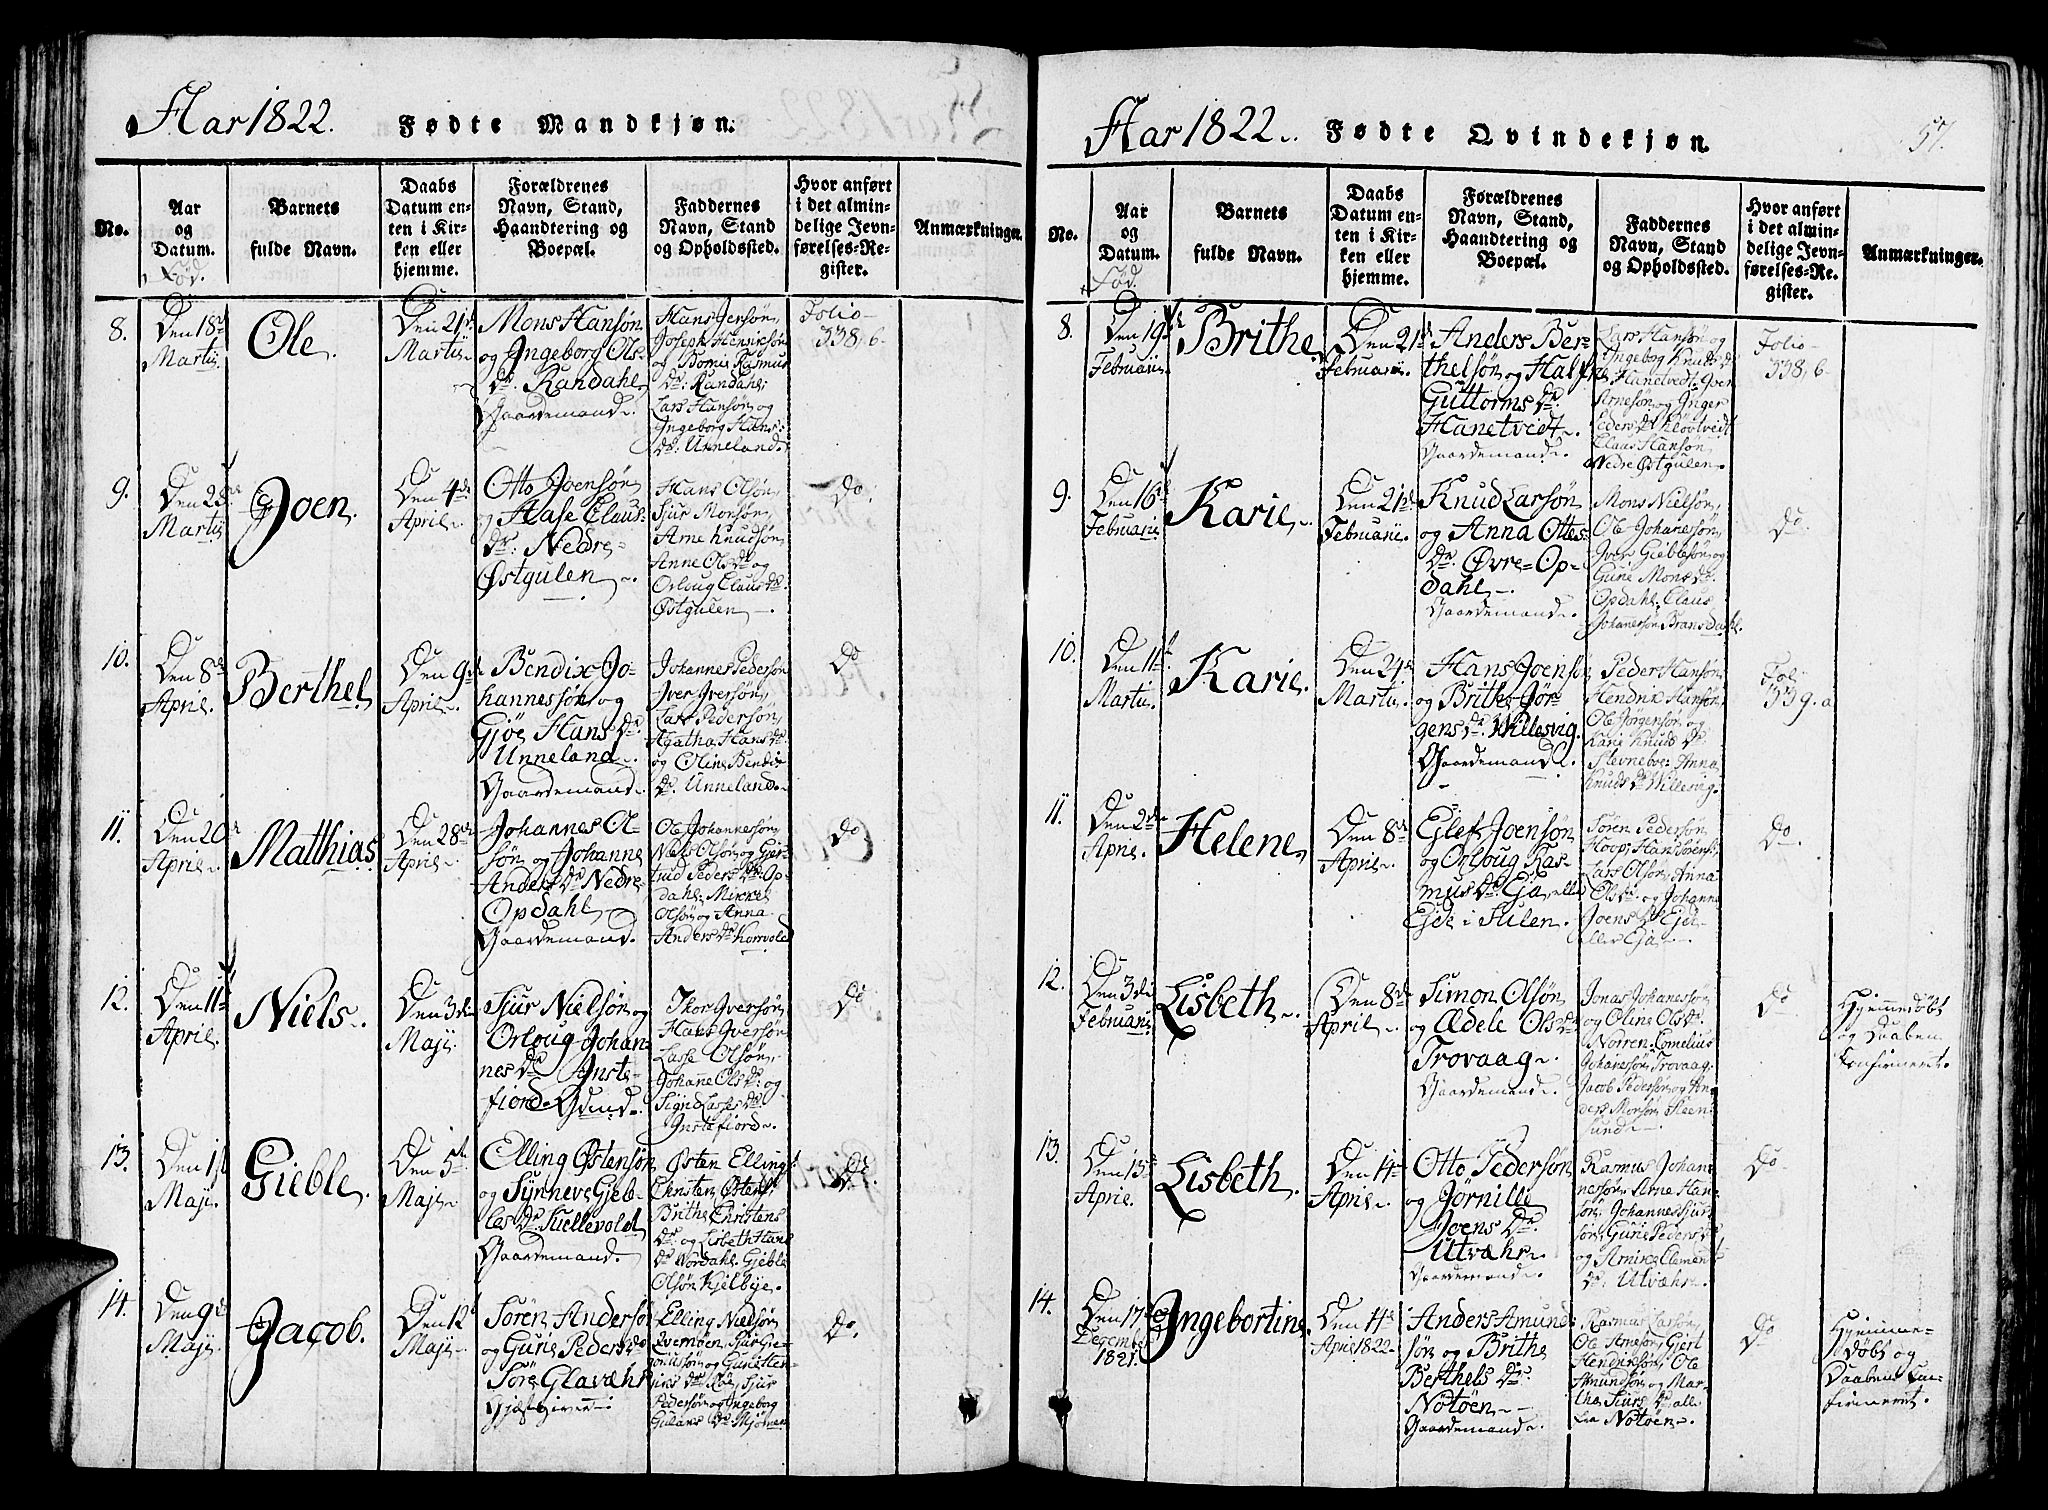 Aar 1822. Fødte Mandkjøn.
No.
Aar
og
Datum.
Fød.
Barnets
fulde Navn.
Daabs
Datum en-
ten i Kir-
ken eller
hjemme.
Forældrenes
Navn, Stand,
Haandtering og
Boepæl.
Faddernes
Navn, Stand
og Opholdssted.
Hvor anført
i det almin-
delige Jevn-
førelses-Re-
gister.
Anmærkninger.
8.
Den 18de
Martii
Ole.
Den 21de
Martii
Mons Hansøn
og Ingeborg Ols
Dr. Randahl
Gaardemand.
Hans Jersøn,
Joseph Henriksøn
og Bomie Rasmus
Dr: Randahl;
Lars Hansøn og
Ingeborg Hans:
Dr: Unneland.
Folio
338, 6.
9.
Den 23de
Martii
Joen.
Den 4de
April.
Otto Joensøn
og Aase Claus
Dr: Nedre=
Østgulen.
Hans Olsøn,
Sjur Monsøn,
Arne Knudsøn
Anne Ols Dr og
Orloug Claus Dr:
Østgulen.
Do.
10.
Den 8de
April.
Berthel
Den 9de
April.
Bendix Jo-
hannessøn og
Gjøe Hans Dr.
Unneland.
Gaardemand.
Johannes Pedersøn
Iver Iversøn,
Lars Pedersøn,
Agatha Hans Dr.
og Oline Bendix
Dr. Unneland.
Do
11.
Den 20de
April.
Matthias.
Den 28de
April.
Johannes O-
søn og Johanne
Anders Dr Nedre
Opdahl
Gaardemand.
Ole Johannessøn,
Niels Olsøn og Gjer-
trud Peders Dr. Op-
dahl; Mickel
Olsøn og Anna
Anders Dr Kornvold
Do
12.
Den 11te
April.
Niels.
Den 3die
Maji.
Sjur Nielsøn og
Orloug Johan-
nes Dr Inste-
fiord.
Thor Iversøn,
Hans Iversøn
Lasse Olsøn,
Johanne Ols Dr: og
Signe Lasses Dr.
Instefiord.
Do
13.
Den 1st
Maji.
Gieble.
Den 5te
Maji.
Elling Østensøn
og Synneve Gjeb-
les Dr. Kuellevold
Gaardemand.
Østen Ellings:
Christen Østens:
Brithe Christens
Dr. og Lisbeth Hans
Dr Nordahl. Gjeble
Olsøn Kjelbye.
Do.
14.
Den 9de
Maji.
Jacob.
Den 12te
Maji.
Søren Andersøn
og Gurie Peders Dr
Søre Glavæhr
Gjæstgiver.
Elling Nielsøn,
Qvernøen, Sjur Gre-
goriussøn og Guri
Sjur
Pedersøn og Ingeborg
Mjømen
Do.
Aar 1822. Fødte Qvindekjøn.
57.
No.
Aar
og
Datum.
Fød.
Barnets
fulde Navn.
Daabs
Datum en-
ten i Kir-
ken eller
hjemme.
Forældrenes
Navn, Stand,
Haandtering og
Boepæl.
Faddernes
Navn, Stand
og Opholdssted.
Hvor anført
i det almin-
delige Jevn-
førelses-Re-
gister.
Anmærkninger.
8.
Den 19de
Februarii
Brithe
Den 21de
Februarii.
Anders Ber-
thelsøn og
Guttorms Dr.
Hanetvedt.
Gaardemand.
Lars Hansøn og
Ingeborg Knuds Dr
Hanetvedt, Joen
Arnesøn og Inger
Peders Dr Kløvtvedt
Claus Hansøn
Nedre Østgulen.
Folio
338, 6
9.
Den 16de
Februarii
Karie.
Den 21de
Februarii.
Knud Larsøn
og Anna Ottes
Dr. Øvre=Op-
dahl.
Gaardemand.
Mons Nielsøn,
Ole Johanessøn,
Iver Gieblesøn og
Gurie Mons Dr.
Opdahl, Claus
Johanessøn Bransdahl.
Do.
10.
Den 11te
Martii.
Karie.
Den 24de
Martii.
Hans Joensøn
og Brithe Jør
gens Dr. Willesvig.
Gaardemand.
Peder Hansøn,
Hendrik Hansøn,
Ole Jørgensøn og
Karie Knuds Dr.
Stevneboe: Anna
Knuds Dr Willesvig.
Fol.
339. a
11.
Den 2de
April.
Helene.
Den 8de
April.
Elef Joensøn
og Orloug Ras-
mus Dr. Eja, eller
Ejde i Sulen.
Søren Pedersøn,
Hoop; Hans Sørens:
Lars Olsøn, Anna
Ols Dr. og Johanne
Joens Dr Ejde
eller Eja.
Do.
12.
Den 3die
Februarii
Lisbeth.
Den 8de
April.
Simon Olsøn
og Ædele Ols Dr.
Trovaag.
Gaardemand.
Jonas Johanessøn
og Oline Ols Dr.
Norren: Cornelius
Johanessøn, Trovaag;
Jacob Pedersøn og An-
ders Monsøn, Steen-
sund.
Do
Hjemmedøbt
og Daaben
Confirmeret.
13.
Den 13de
April.
Lisbeth.
Den 14de
April.
Otto Pedersøn
og Jørnille
Joens Dr.
Utvæhr.
Gaardemand.
Rasmus Johan-
nessøn, Arne Han-
søn, Johannes Sjur
søn, Gurie Peders Dr
og Arnike Clements
Dr: Utvæhr.
Do.
14.
Den 17de
December
1821.
Ingebortine
Den 14de
April 1822.
Anders Amund
søn og Brithe
Berthels Dr.
Nötöen
Gaardemand.
Rasmus Larsøn,
Ole Arnesøn, Gjert
Hendriksøn, Ole
Amundsøn og Mar-
the Siurs Dr alle
fra Nötöen.
Do
Hjemme-
døbt og
Daaben Con-
firmeret.